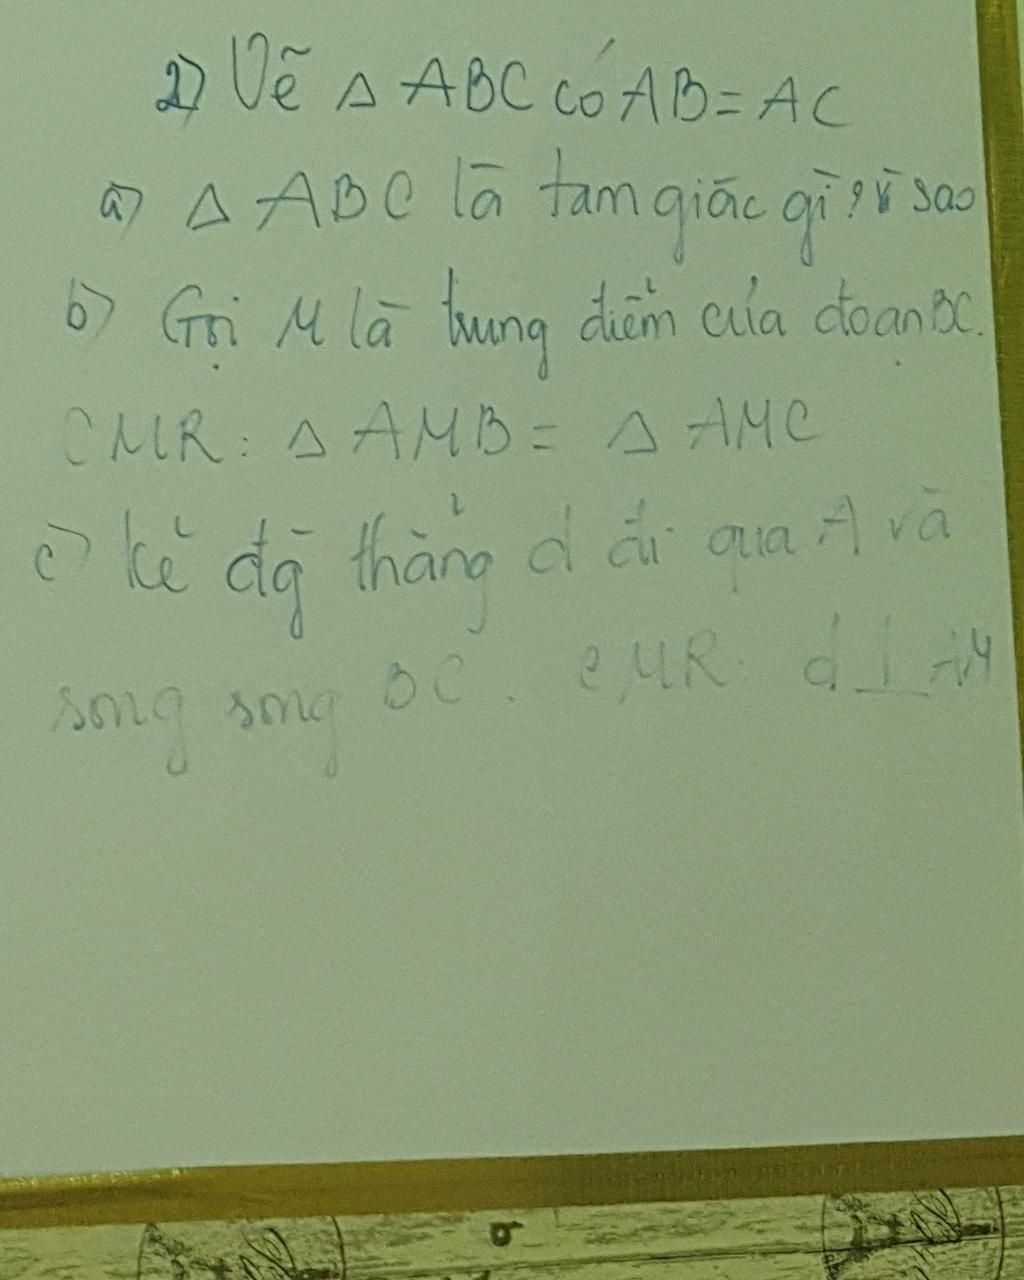 2) Vẽ Δ ABC có AB = AC
a) Δ ABC là tam giác gì? vì sao
b) Gọi M là trung điểm của đoạn BC.
CMR: Δ AMB = Δ AMC
c) Kẻ đg̃ thẳng d đi qua A và
song song BC. CMR: d ⊥ AM